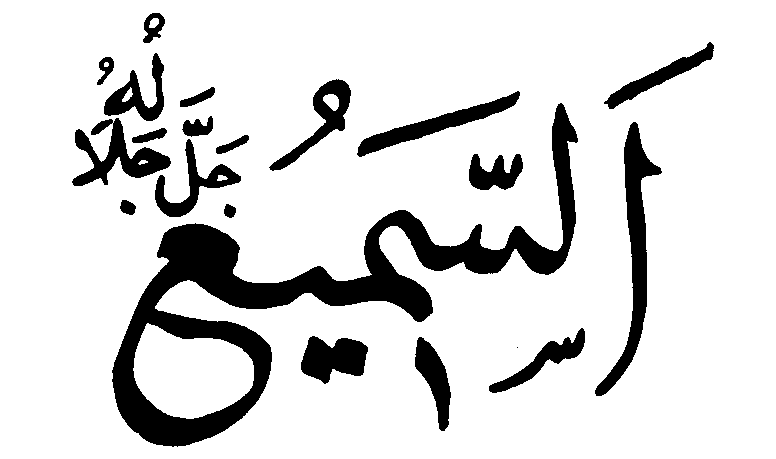 اَلسَّمِيعُ
جَلَّ جَلَالُهُ